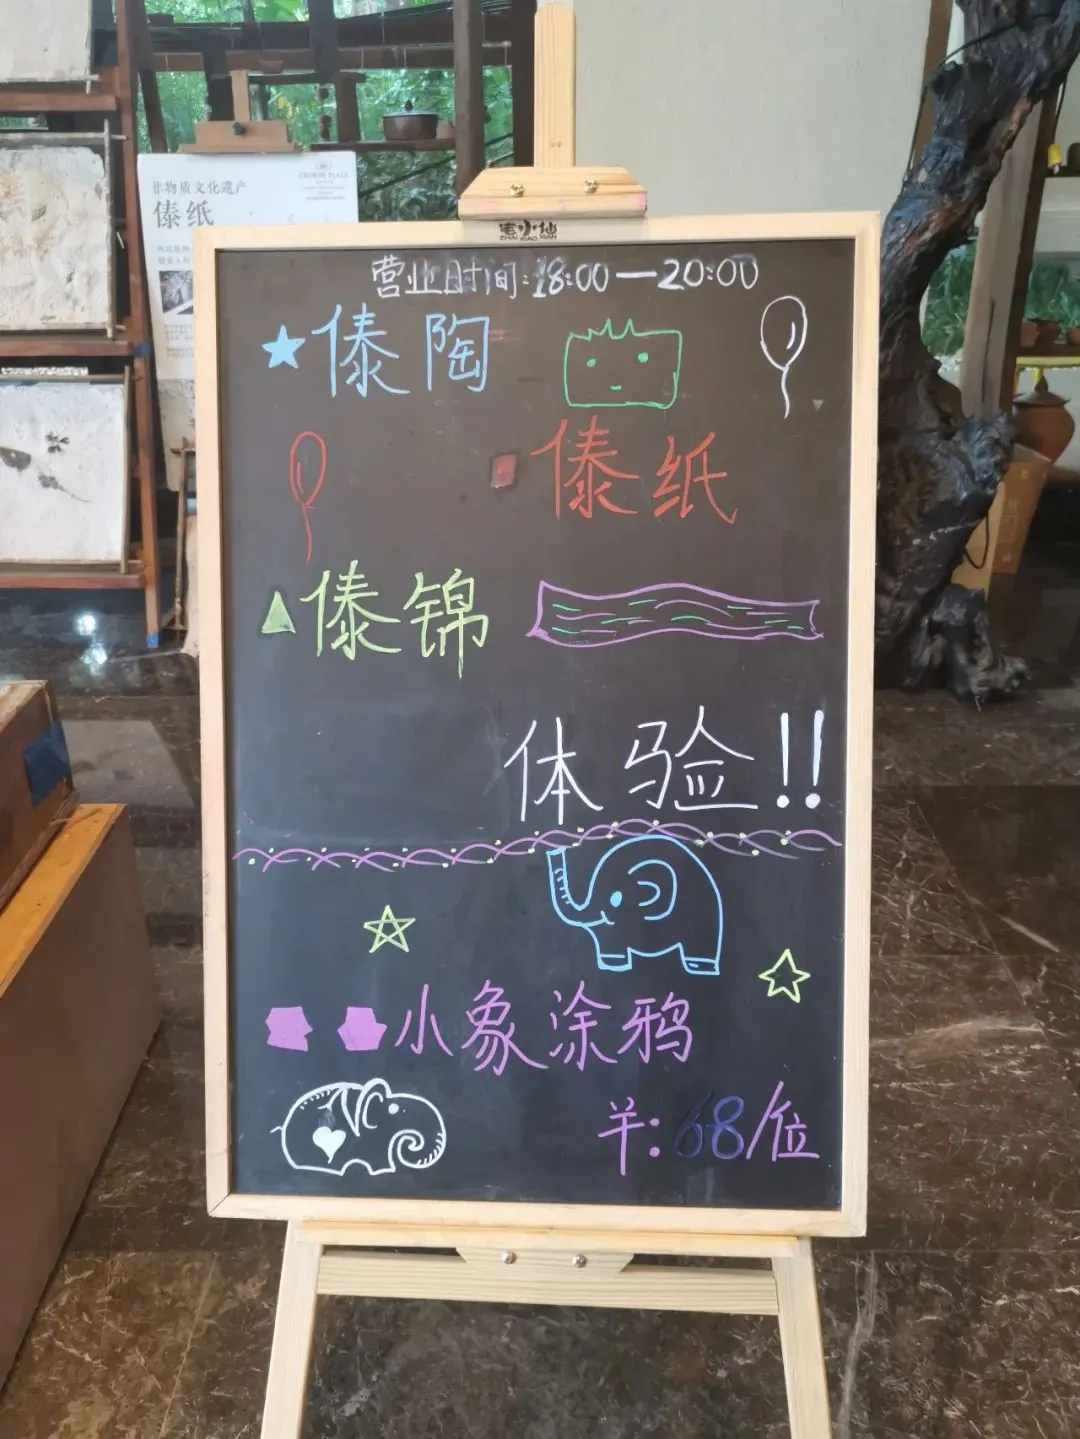 非物质文化遗产
傣纸
CROWNE PLAZA
宅小仙
ZHAI XIAO XIAN
营业时间:18:00—20:00
傣陶
傣纸
傣锦
体验!!
小象涂鸦
羊:68/位